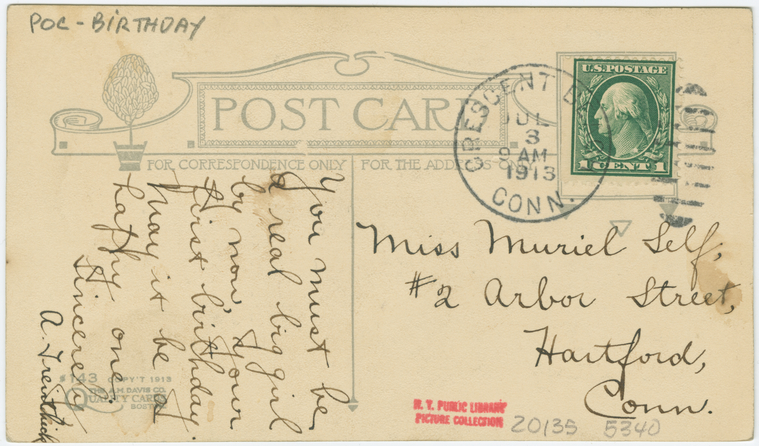 POC - BIRTHDAY
POST CARD
FOR CORRESPONDENCE ONLY
FOR THE ADDRESS ONLY
U.S. POSTAGE
1 CENT 1
CRESCENT
JUL
3
9 AM
1913
CONN.
You must be
a real big girl
by now, your
first birthday.
May it be a
happy one.
Sincerely
A.
Miss Muriel Self,
#2 Arbor Street,
Hartford,
Conn.
143 COPY'T 1913
THE A.M. DAVIS CO.
QUALITY CARDS
BOSTON
N. Y. PUBLIC LIBRARY
PICTURE COLLECTION
20135 5340